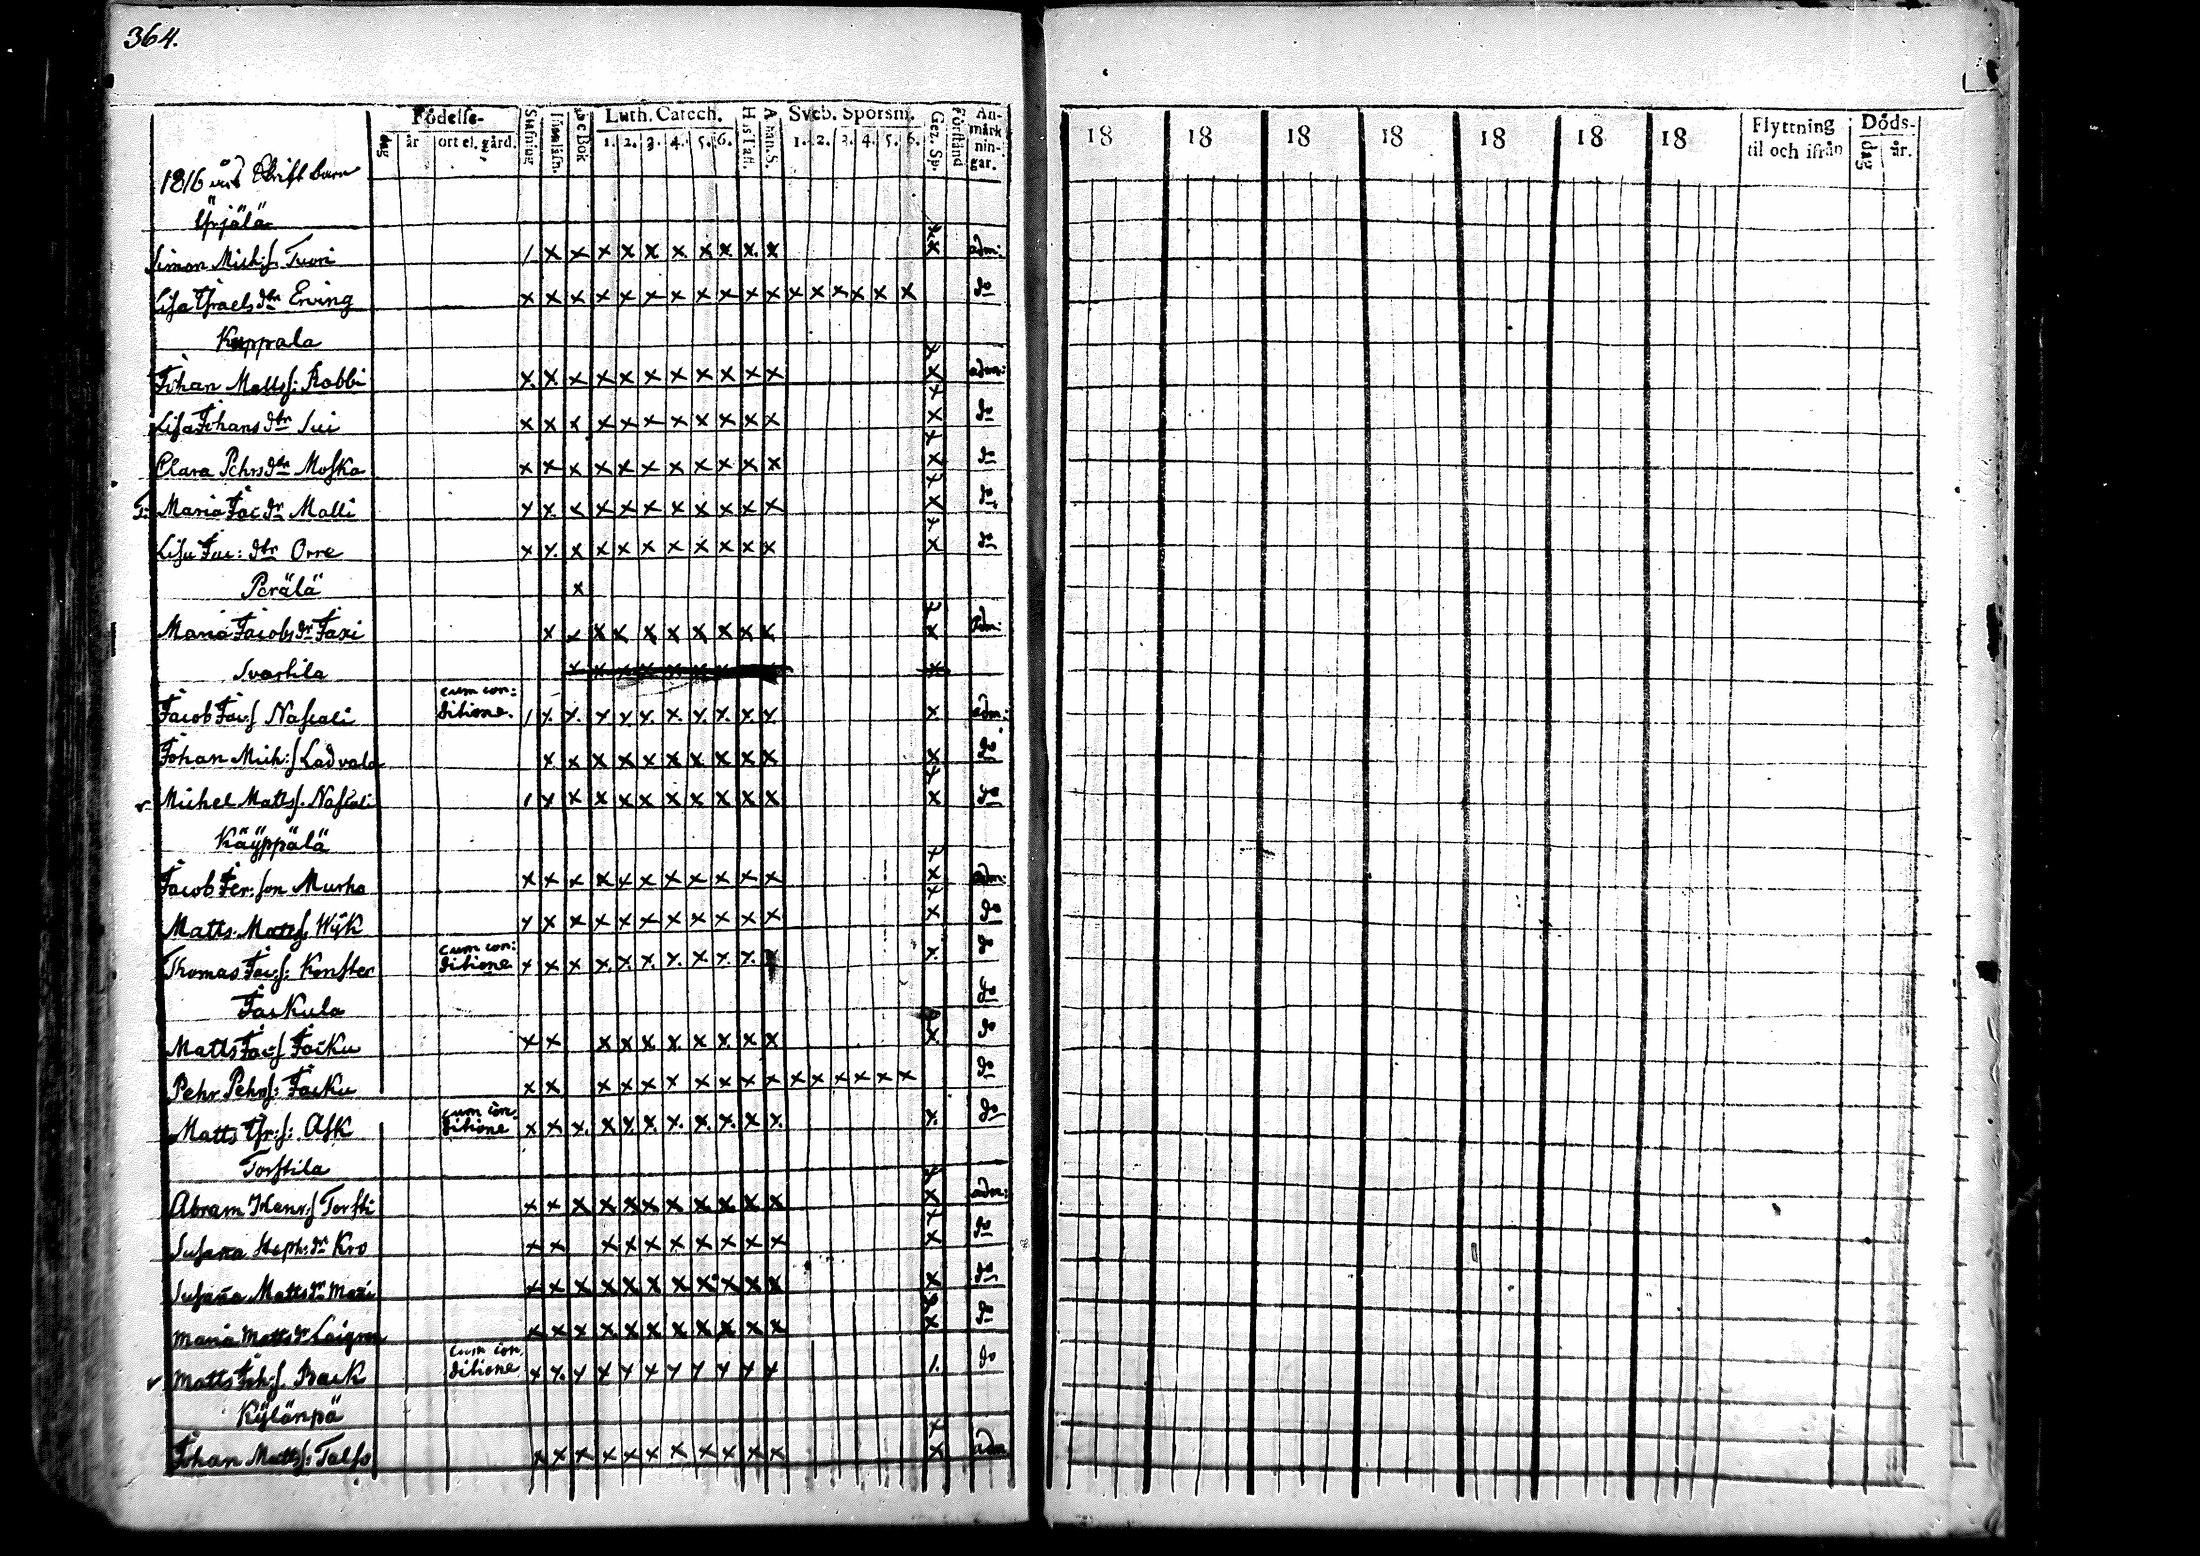 364.
Födelse-
dag
år
ort el. gård.
Stafning
Innanläsn.
Abc Bok
Luth. Catech.
1. 2. 3. 4. 5. 6.
Hus Tafl.
Athan. S.
Sveb. Spörsm.
1. 2. 3. 4. 5. 6.
Gez. Sp.
Förstånd
An-
märk
nin-
gar.
18 18 18 18 18 18 18
Flyttning
til och ifrån
Döds-
dag år.
1816 års Skrift barn
Yrjälä
Simon Mich:s. Tuori / x x x x x x x x x x x adm:
Lisa Israels dtr Erving x x x x x x x x x x x x x x x x x do
Kuppala
Johan Matts s: Robbi x x x x x x x x x x x x adm:
Lisa Johans dtr Sui x x x x x x x x x x x x do
Clara Pehrs dtr Moska x x x x x x x x x x x x do
Maria Jac dr Malli x x x x x x x x x x x x do
Lisa Jac: dtr Orre x x x x x x x x x x x x do
Perälä x
Maria Jacobs dr Jaxi x x x x x x x x x x x adm:
Svartila
Jacob Jac:s Nascali cum con:
ditione. / x x x x x x x x x x x adm:
Johan Mich:s Ladvala x x x x x x x x x x x do
Michel Matts s. Nascali / x x x x x x x x x x x do
Käyppälä
Jacob Jer:son Murha x x x x x x x x x x x x adm
Matts Matts s. Wijk x x x x x x x x x x x x do
Thomas Jac:s: Konster cum con:
ditione x x x x x x x x x x x x do
Jaakula do
Matts Jac:s Jaaku x x x x x x x x x x x do
Pehr Pehrs s: Jaaku x x x x x x x x x x x x x x x x do
Matts Isr:s: Ask cum con.
ditione x x x x x x x x x x x x do
Torstila
Abram Henr:s Torsti x x x x x x x x x x x x adm:
Susana Steph: dr Kro x x x x x x x x x x x do
Susana Matts dr Maxi x x x x x x x x x x x x do
Maria Matts dr x x x x x x x x x x x x do
Matts Joh:s. Back cum con.
ditione x x x x x x x x x x x 1. do
Kylänpä
Johan Matts s: Talso x x x x x x x x x x x x adm